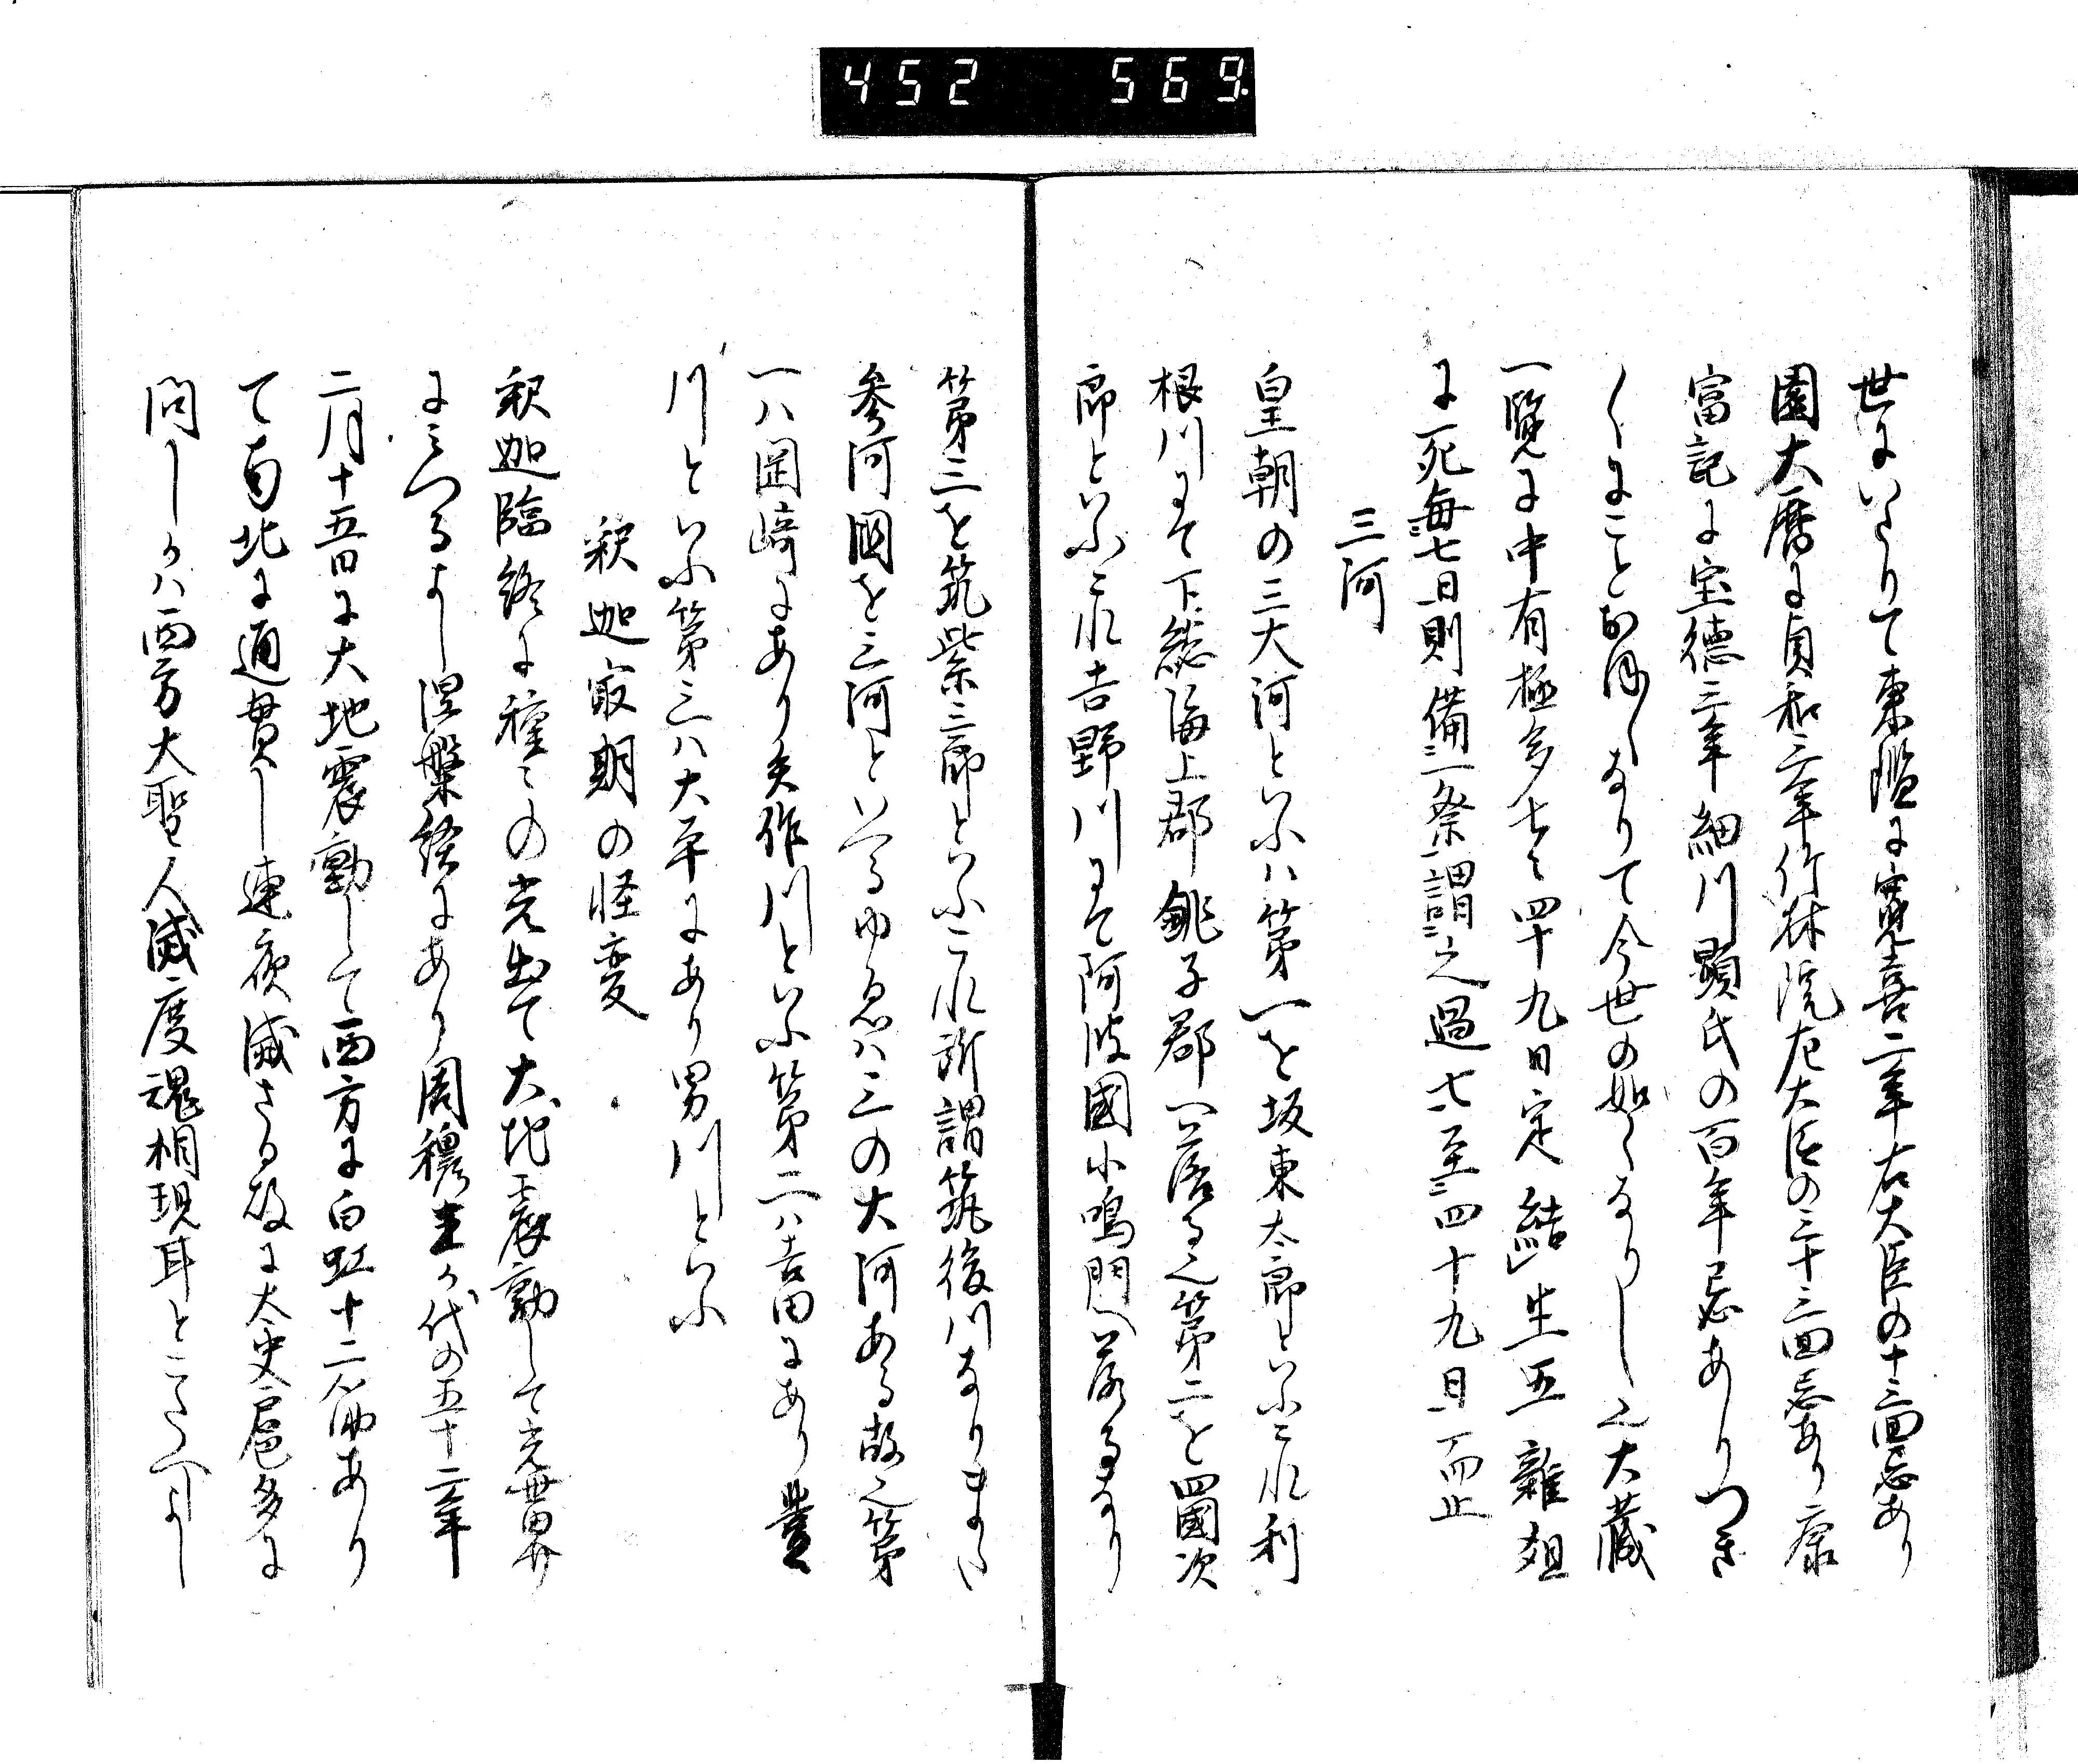 452 569.
世にいたりて東鑑に寛喜二年右大臣の十三回忌あり
園大暦に貞和二年竹林院左大臣の三十三回忌あり康
富記に宝徳三年細川顕氏の百年忌ありつき
〱にことおほくなりて今世の如くなりし也大蔵
一覧に中有極多七々四十九日定結生五雑俎
に死毎七日則備一祭謂之過七至四十九日而止
三河
皇朝の三大河といふハ第一を坂東太郎といふこれ利
根川にて下総海上郡銚子郡へ落る也第二を四國次
郎といふこれ吉野川にて阿波國小鳴門へ落るなり
第三を筑紫三郎といふこれ所謂筑後川なりまた
参河國を三河といへるゆゑハ三の大河ある故也第
一ハ岡崎にあり矢作川といふ第二ハ吉田にあり豊
川といふ第三ハ大平にあり男川といふ
釈迦最期の怪変
釈迦臨終に種々の光出て大地震動して光世界
にみつるよし涅槃経にあり周穆王か代の五十二年
二月十五日に大地震動して西方に白虹十二条あり
て南北に通貫し連夜滅さる故に太史扈多に
問しかハ西方大聖人滅度魂相現耳とこたへしよし